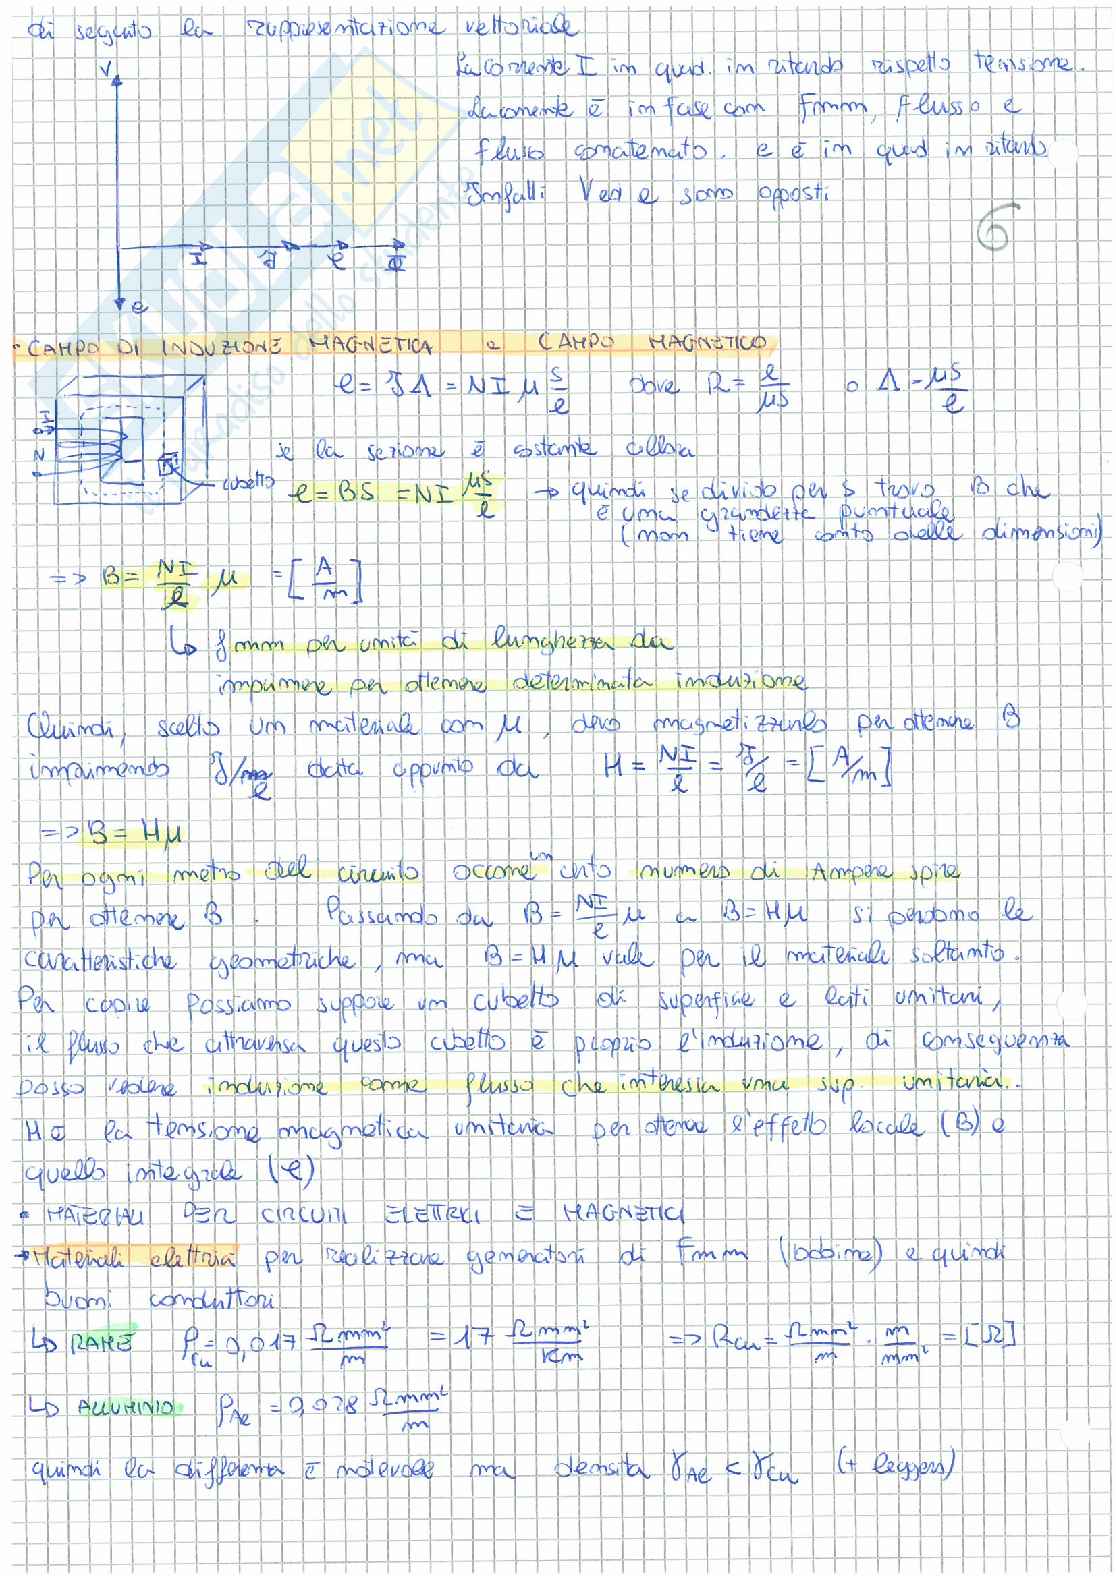 di seguito la rappresentazione vettoriale
V
La corrente I in quad. in ritardo rispetto tensione.
La corrente è in fase con Fmm, flusso e
flusso concatenato. e è in quad in ritardo
Infatti V ed e sono opposti
6
I ℱ φ Ψ
e
• CAMPO DI INDUZIONE MAGNETICA e CAMPO MAGNETICO
φ = ℱ Λ = NI μ S/l dove R = l/μS o Λ = μS/l
I
N
cubetto
se la sezione è costante allora
φ = BS = NI μS/l → quindi se divido per S trovo B che
è una grandezza puntuale
(non tiene conto delle dimensioni)
=> B = NI/l μ = [A/m]
↳ fmm per unità di lunghezza da
imprimere per ottenere determinata induzione
Quindi, scelto un materiale con μ, devo magnetizzarlo per ottenere B
imprimendo ℱ/l data appunto da H = NI/l = ℱ/l = [A/m]
=> B = Hμ
Per ogni metro del circuito occorre un certo numero di Ampere spire
per ottenere B. Passando da B = NI/l μ a B = Hμ si perdono le
caratteristiche geometriche, ma B = Hμ vale per il materiale soltanto.
Per capire possiamo supporre un cubetto di superficie e lati unitari,
il flusso che attraversa questo cubetto è proprio l'induzione, di conseguenza
posso vedere induzione come flusso che interessa una sup. unitaria.
H è la tensione magnetica unitaria per ottenere l'effetto locale (B) e
quello integrale (φ)
• MATERIALI PER CIRCUITI ELETTRICI E MAGNETICI
→ Materiali elettrici per realizzare generatori di Fmm (bobine) e quindi
buoni conduttori
↳ RAME ρCu = 0,017 Ωmm²/m = 17 Ωmm²/Km => RCu = Ωmm²/m · m/mm² = [Ω]
↳ ALLUMINIO ρAl = 0,028 Ωmm²/m
quindi la differenza è notevole ma densità γAl < γCu (+ leggero)